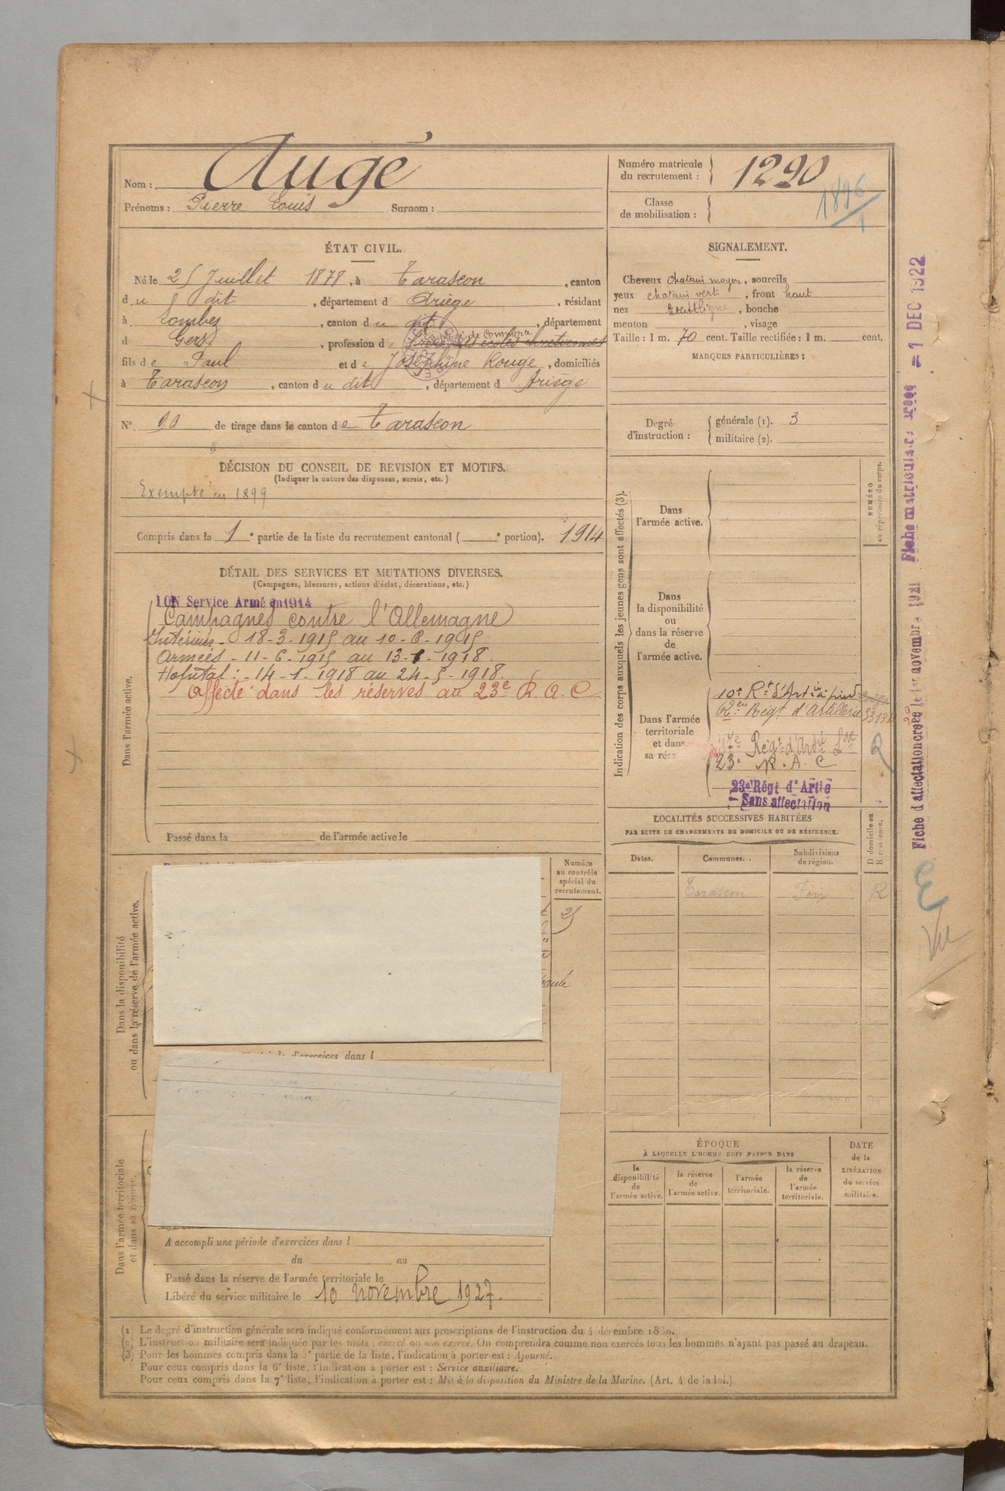 Nom : Augé
Prénoms : Pierre Louis Surnom :
Numéro matricule du recrutement : 1290
Classe de mobilisation : 1896
ÉTAT CIVIL.
Né le 25 Juillet 1878, à Tarascon, canton
du dit, département d Ariège, résidant
à Lombez, canton du dit, département
d Gers, profession d
fils de Paul et de Joséphine Rouge, domiciliés
à Tarascon, canton du dit, département d Ariège
N° 90 de tirage dans le canton de Tarascon
DÉCISION DU CONSEIL DE REVISION ET MOTIFS.
(Indiquer la nature des dispenses, sursis, etc.)
Exempté en 1899
Compris dans la 1e partie de la liste du recrutement cantonal ( e portion). 1914
SIGNALEMENT.
Cheveux chatain moyen, sourcils
yeux chatain vert, front haut
nez , bouche
menton , visage
Taille : 1 m. 70 cent. Taille rectifiée : 1 m. cent.
MARQUES PARTICULIÈRES :
Degré d'instruction : générale (1). 3
militaire (2).
DÉTAIL DES SERVICES ET MUTATIONS DIVERSES.
(Campagnes, blessures, actions d'éclat, décorations, etc.)
BON Service Armé en 1914
Campagnes contre l'Allemagne
Intérieur - 18-3-1915 au 10-6-1915
Armées - 11-6-1915 au 13-1-1918.
Hôpital : - 14-1-1918 au 24-5-1918.
Affecté dans les réserves au 23e R.A.C
Dans l'armée active.
Passé dans la de l'armée active le
Indication des corps auxquels les jeunes gens sont affectés (3).
NUMÉRO au répertoire du corps.
Dans l'armée active.
Dans la disponibilité ou dans la réserve de l'armée active.
Dans l'armée territoriale et dans sa réserve
10e Rt d'Artie à pied
Régt d'Artillerie
Régt d'Artie Lde
23e R.A.C
23e Régt d'Artie
Sans affectation
LOCALITÉS SUCCESSIVES HABITÉES
PAR SUITE DE CHANGEMENTS DE DOMICILE OU DE RÉSIDENCE.
Dates. Communes. Subdivisions de région. D domicile ou R résidence.
Tarascon Foix R
Dans la disponibilité ou dans la réserve de l'armée active.
Numéro au contrôle spécial du recrutement.
25
d'exercices dans l
Dans l'armée territoriale et dans sa réserve.
A accompli une période d'exercices dans l
du au
Passé dans la réserve de l'armée territoriale le
Libéré du service militaire le 10 novembre 1927.
ÉPOQUE
À LAQUELLE L'HOMME DOIT PASSER DANS
la disponibilité de l'armée active. la réserve de l'armée active. l'armée territoriale. la réserve de l'armée territoriale.
DATE de la LIBÉRATION du service militaire.
(1) Le degré d'instruction générale sera indiqué conformément aux prescriptions de l'instruction du 4 décembre 1889.
(2) L'instruction militaire sera indiquée par les mots : exercé ou non exercé. On comprendra comme non exercés tous les hommes n'ayant pas passé au drapeau.
(3) Pour les hommes compris dans la 5e partie de la liste, l'indication à porter est : Ajourné.
Pour ceux compris dans la 6e liste, l'indication à porter est : Service auxiliaire.
Pour ceux compris dans la 7e liste, l'indication à porter est : Mis à la disposition du Ministre de la Marine. (Art. 4 de la loi.)
Fiche d'affectation créée le 1er novembre 1921 Fiche matriculaire créée = 1 DEC 1922
Vu